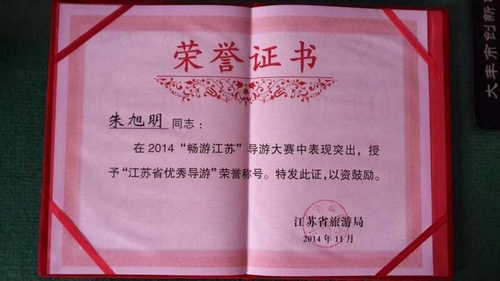 荣誉证书
朱旭明 同志：
在2014“畅游江苏”导游大赛中表现突出，授
予“江苏省优秀导游”荣誉称号。特发此证，以资鼓励。
江苏省旅游局
2014年11月
大丰市创新